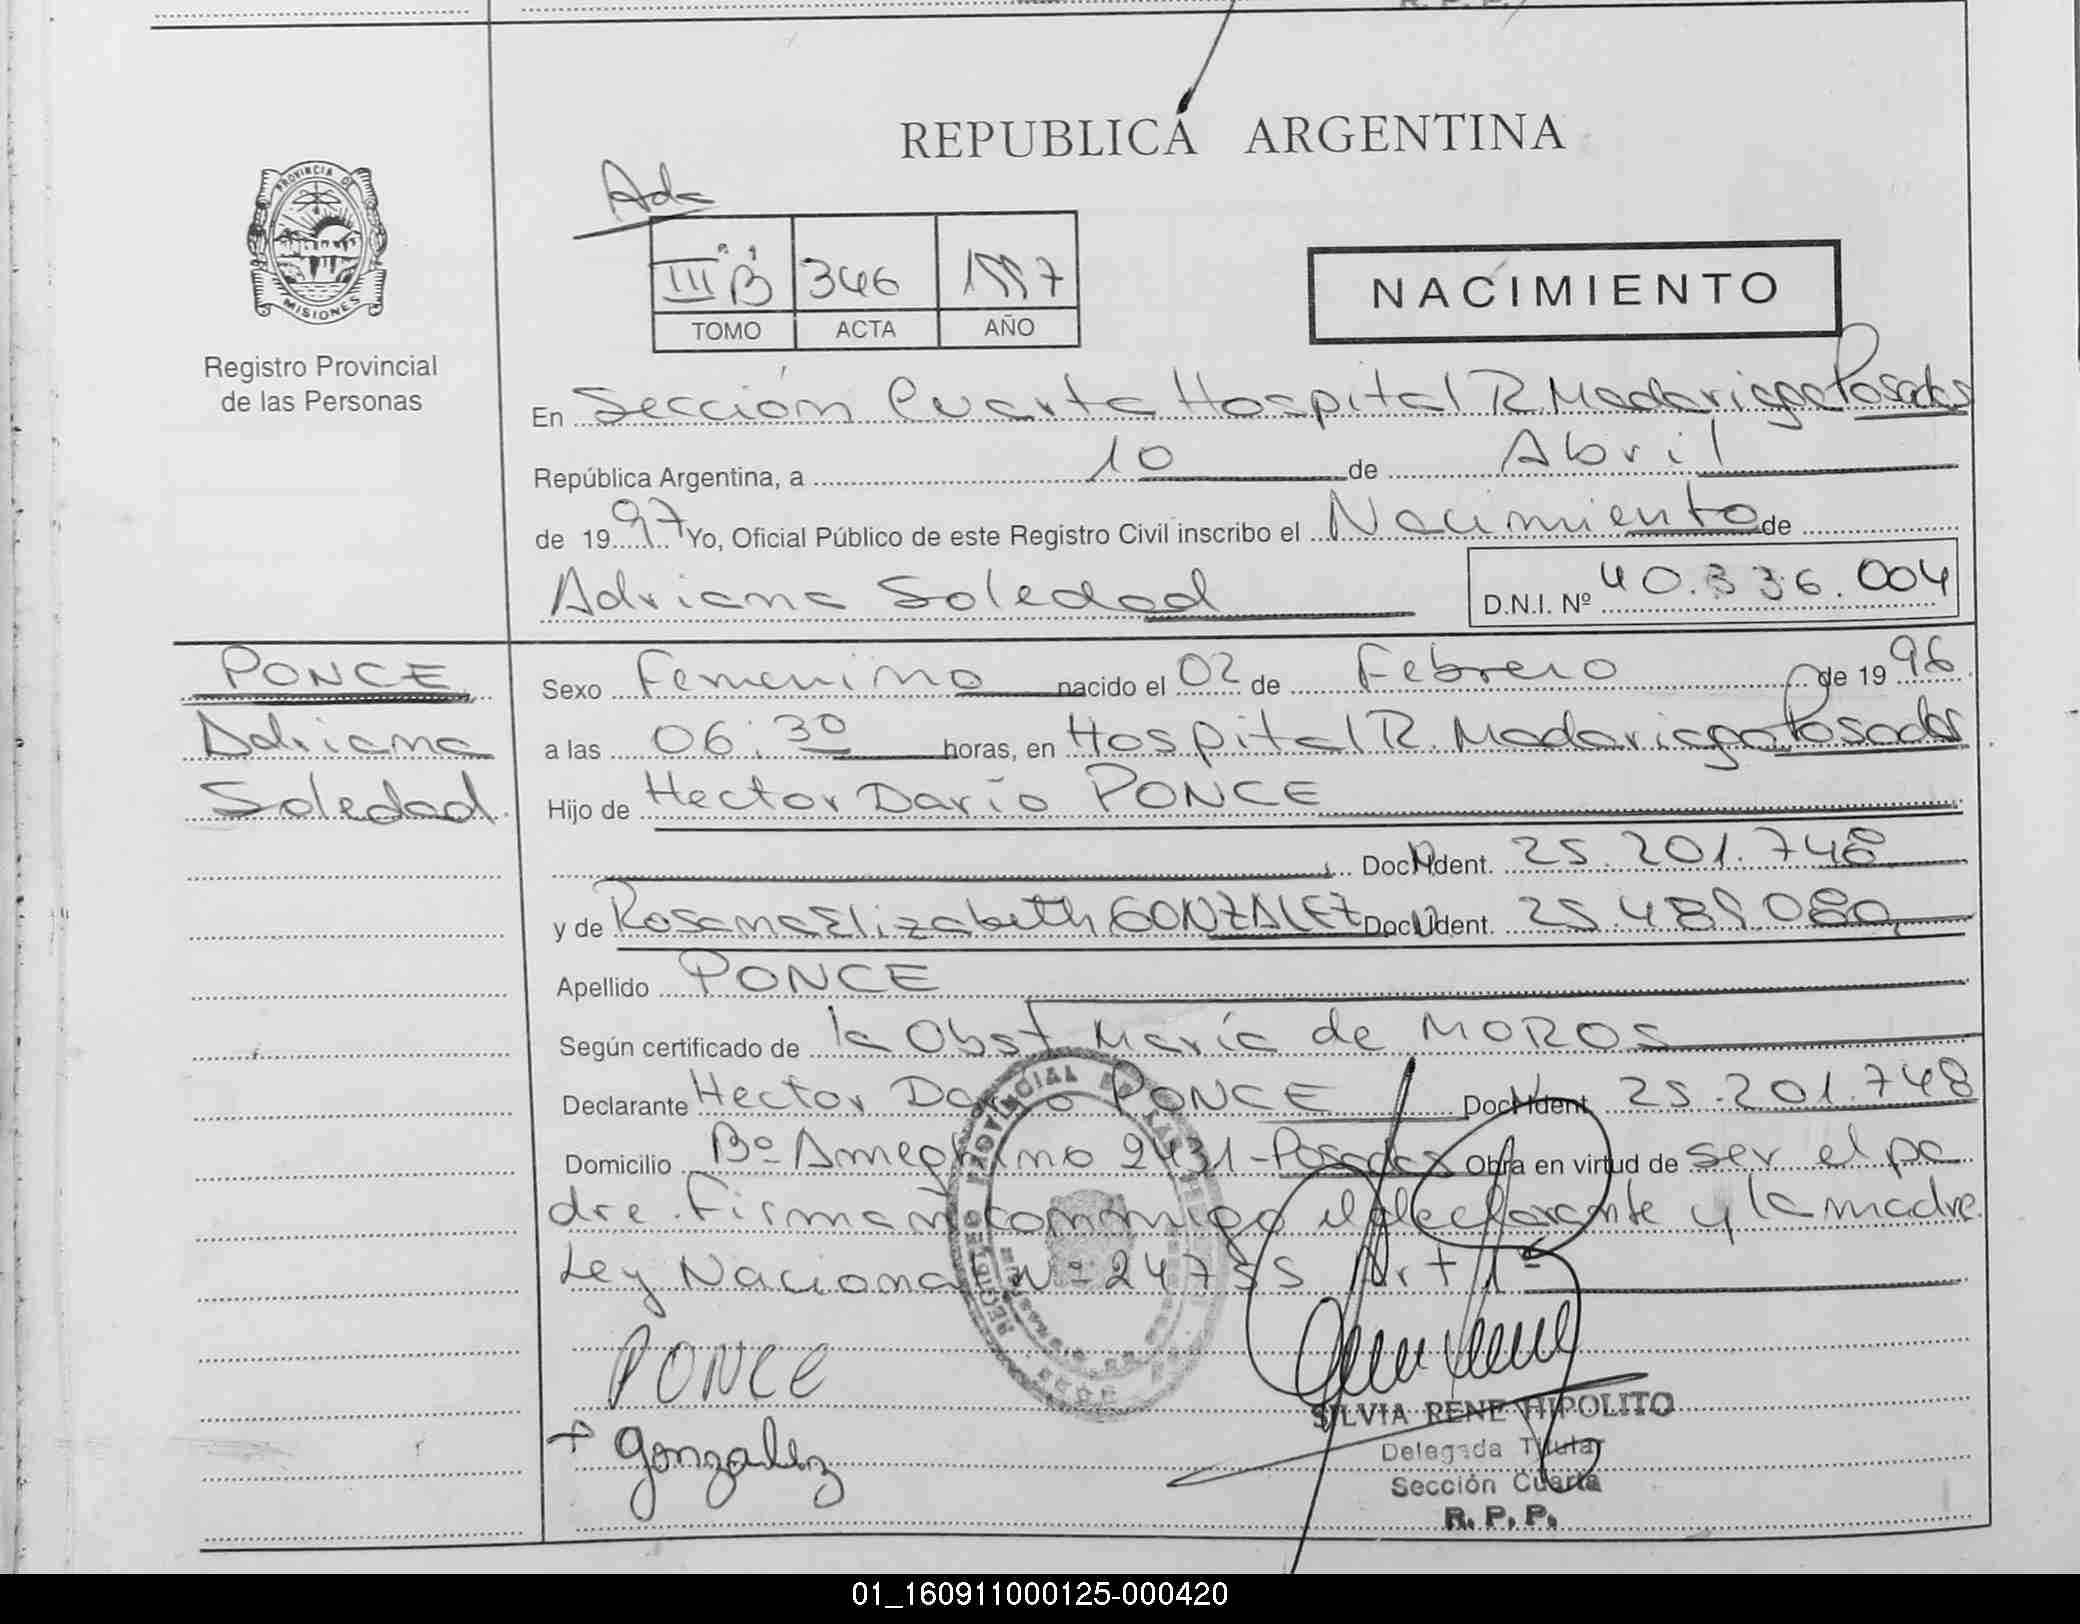 R. P. P.
REPUBLICA ARGENTINA
PROVINCIA DE
MISIONES
Registro Provincial
de las Personas
Adc
III "B" 346 1997
TOMO ACTA AÑO
NACIMIENTO
En Sección Cuarta Hospital R. Madariaga Posadas
República Argentina, a 10 de Abril
de 1997 Yo, Oficial Público de este Registro Civil inscribo el Nacimiento de
Adriana Soledad
D.N.I. Nº 40.336.004
PONCE
Adriana
Soledad
Sexo Femenino nacido el 02 de Febrero de 1996
a las 06:30 horas, en Hospital R. Madariaga Posadas
Hijo de Hector Darío PONCE
Doc. Ident. 25.201.748
y de Rosana Elizabeth GONZALEZ Doc. Ident. 25.489.080
Apellido PONCE
Según certificado de la Obst María de MOROS
Declarante Hector Darío PONCE Doc. Ident. 25.201.748
Domicilio Bº Ameghino 2431-Posadas Obra en virtud de ser el pa
dre. Firman conmigo el declarante y la madre.
Ley Nacional Nº 24755 Art 1º
PONCE
+ gonzalez
SILVIA RENE HIPOLITO
Delegada Titular
Sección Cuarta
R. P. P.
01_160911000125-000420